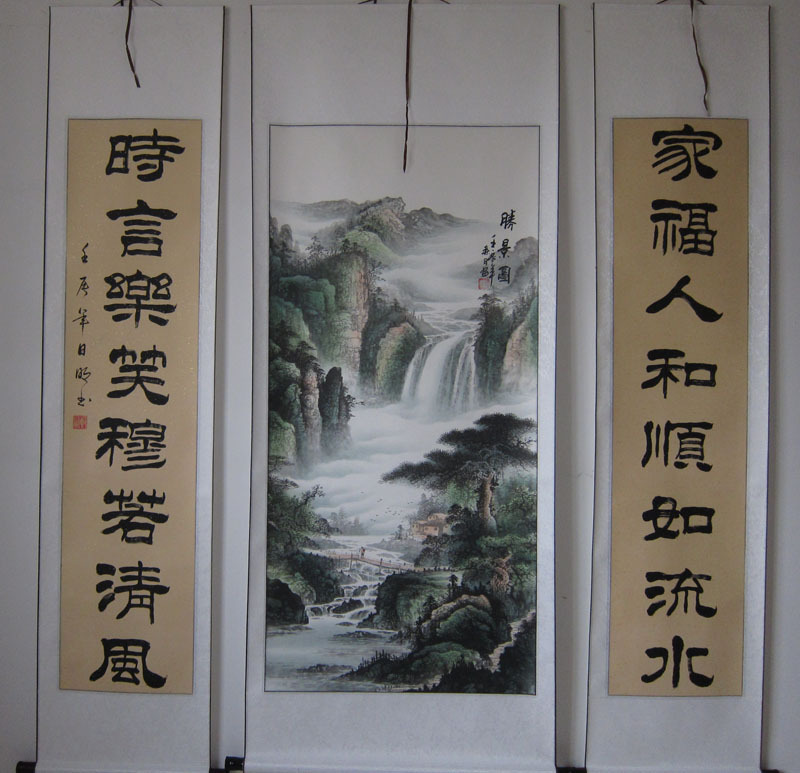 家福人和順如流水
勝景圖
壬辰年
時言樂笑穆若清風
壬辰年日明書